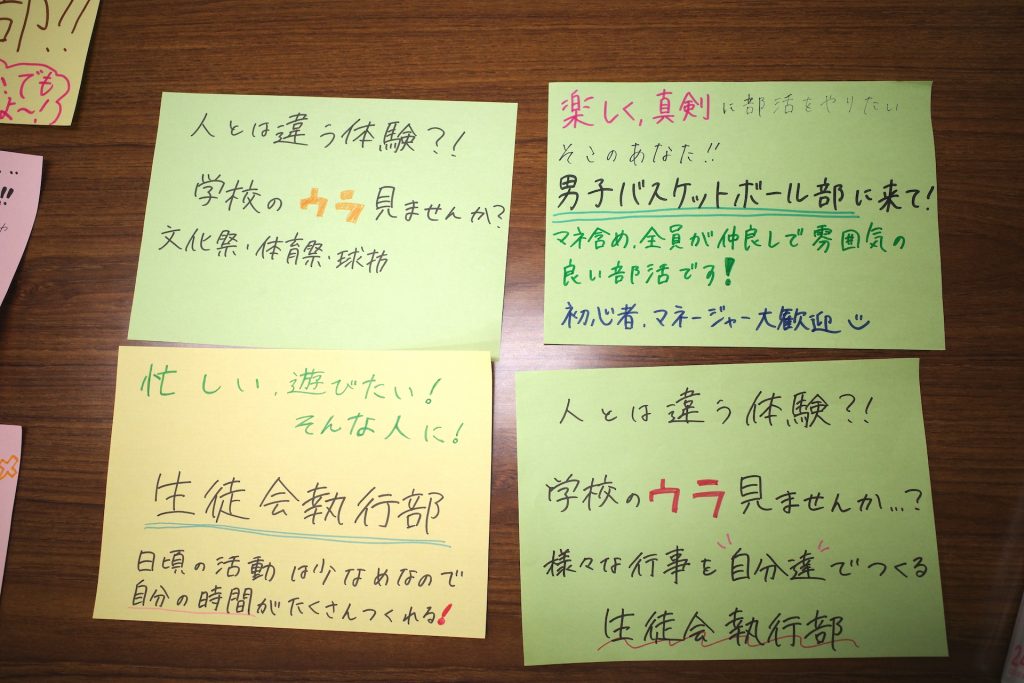 部!!
でも
よ〜!
!!
人とは違う体験?!
学校のウラ見ませんか?
文化祭・体育祭・球技
楽しく,真剣に部活をやりたい
そこのあなた!!
男子バスケットボール部に来て!
マネ含め、全員が仲良しで雰囲気の
良い部活です!
初心者、マネージャー大歓迎
忙しい、遊びたい!
そんな人に!
生徒会執行部
日頃の活動は少なめなので
自分の時間がたくさんつくれる!
人とは違う体験?!
学校のウラ見ませんか…?
様々な行事を自分達でつくる
生徒会執行部